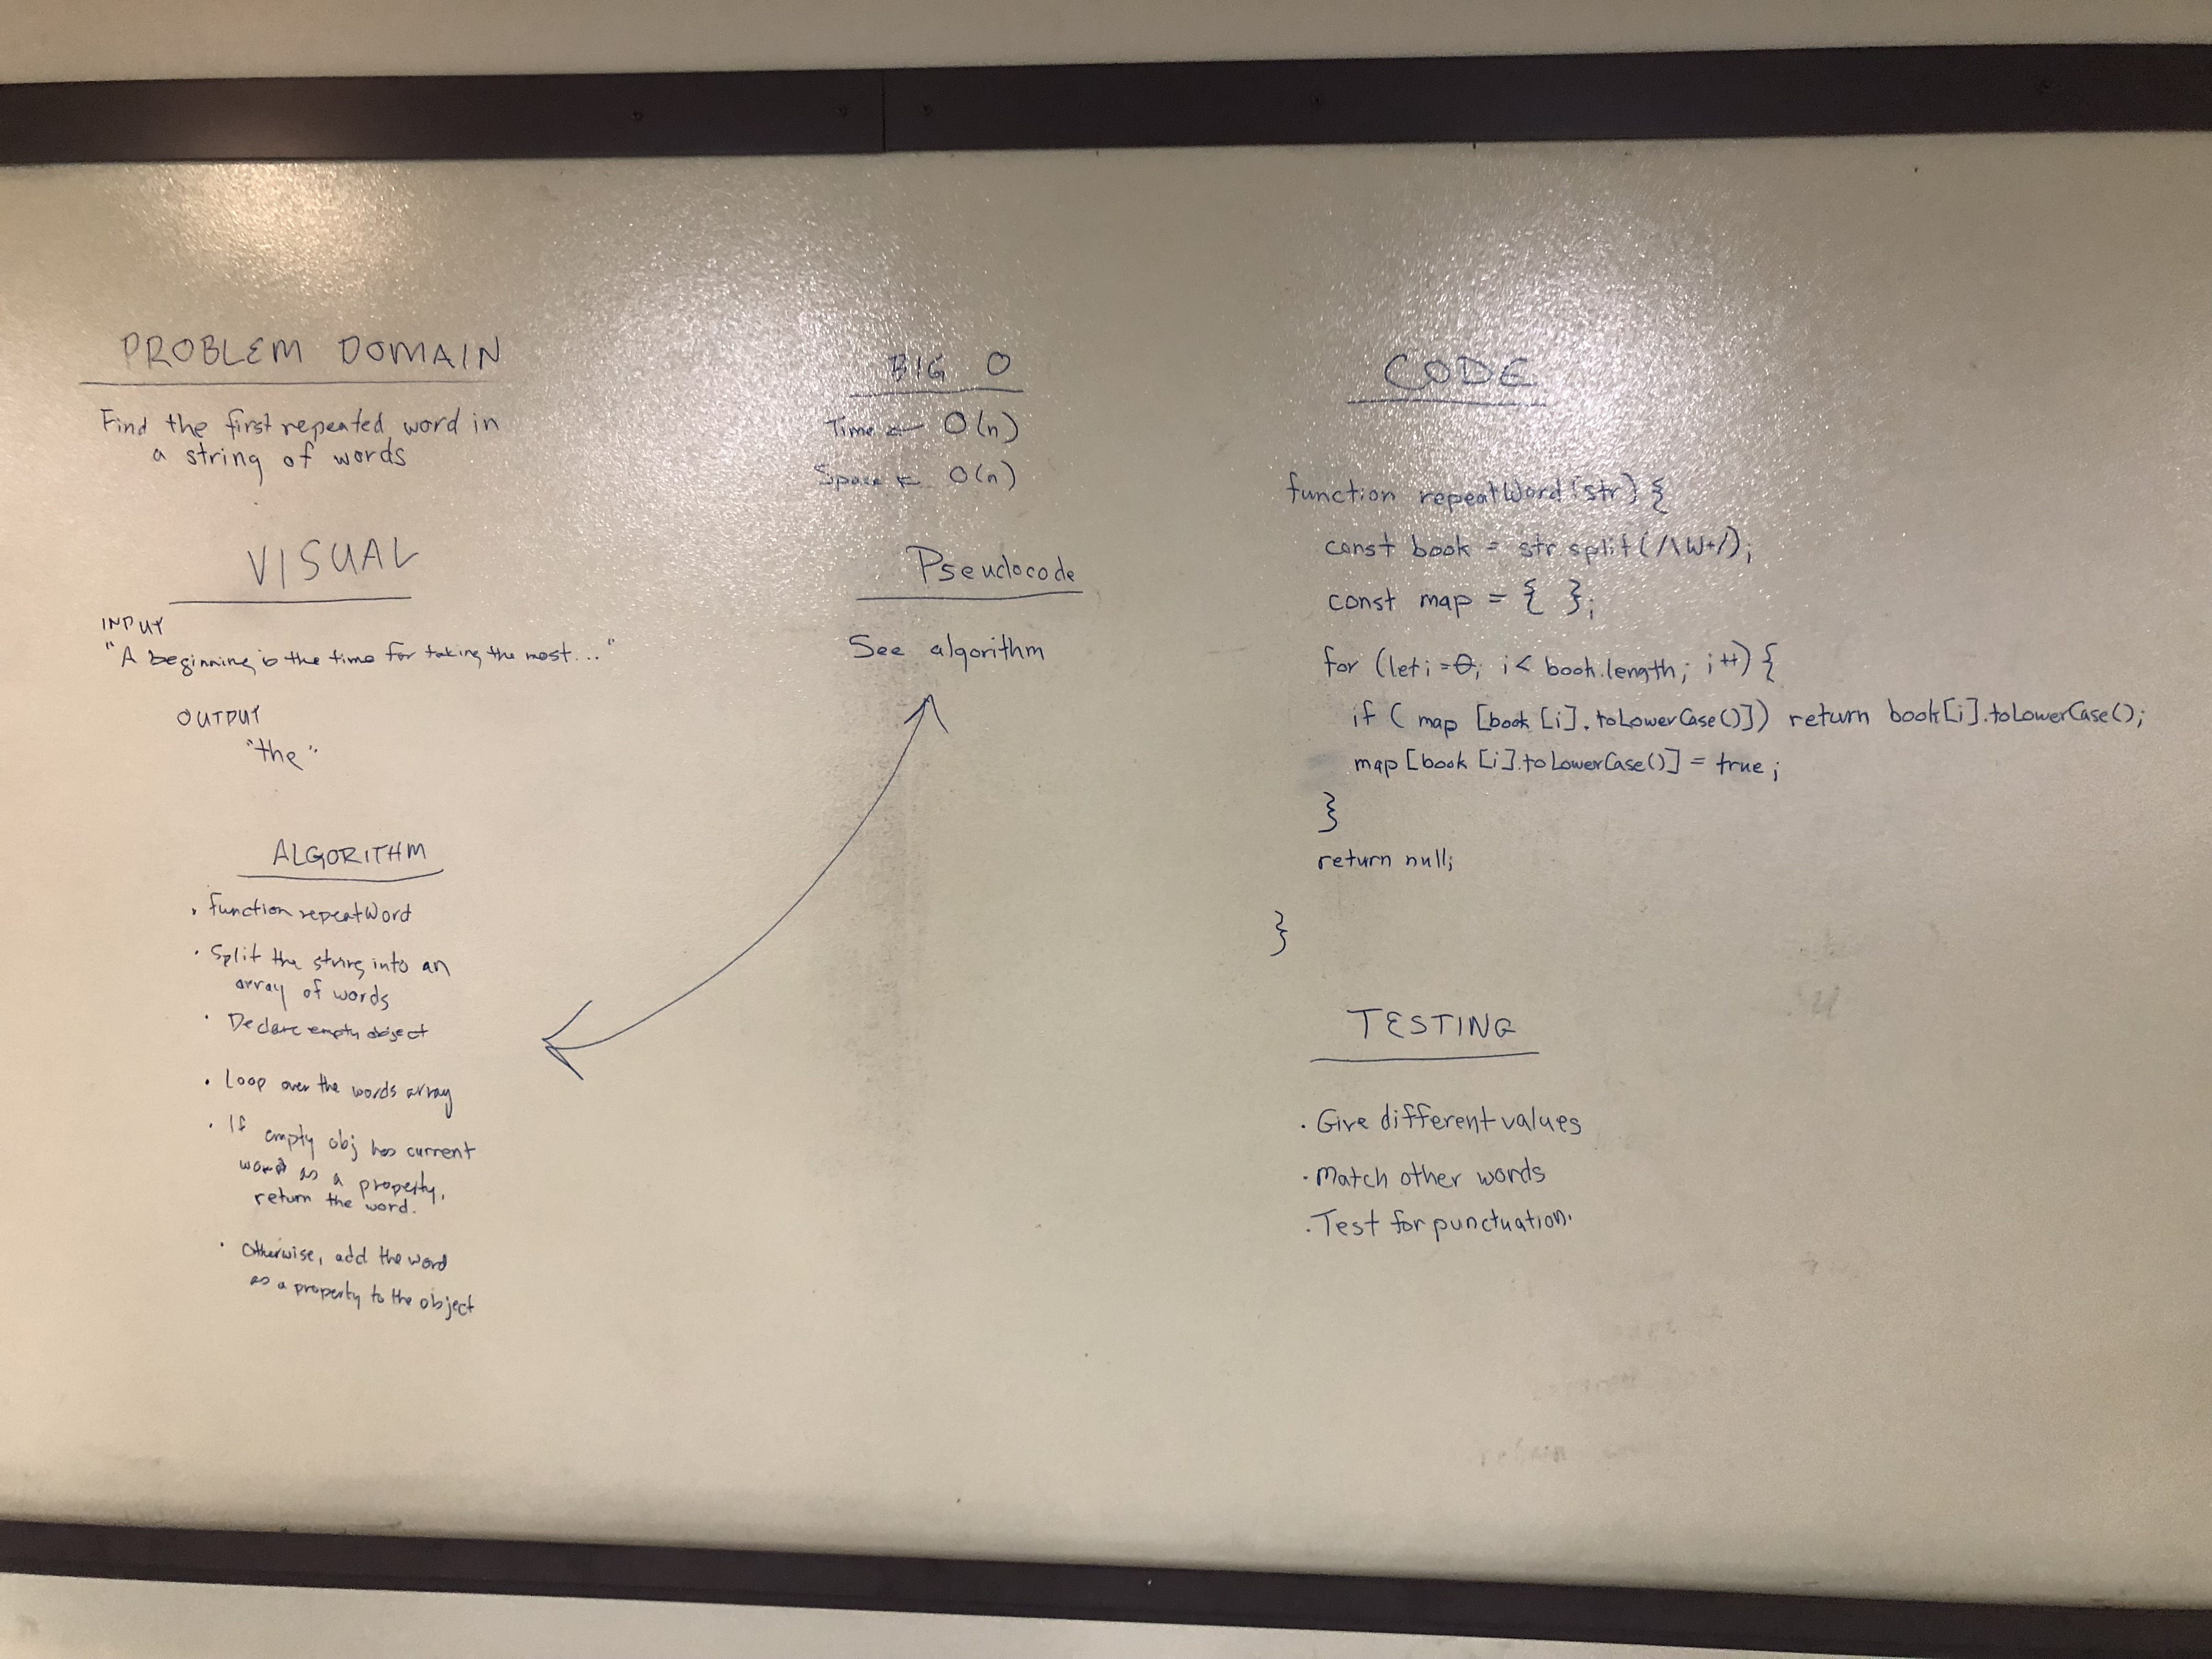 PROBLEM DOMAIN
Find the first repeated word in
a string of words
VISUAL
INPUT
"A beginning is the time for taking the most..."
OUTPUT
"the"
ALGORITHM
· function repeatWord
· Split the string into an
array of words
· Declare empty object
· Loop over the words array
· If empty obj has current
word as a property,
return the word.
· Otherwise, add the word
as a property to the object
BIG O
Time ← O(n)
Space ← O(n)
Pseudocode
See algorithm
CODE
function repeatWord(str) {
const book = str.split(/\W+/);
const map = { };
for (let i = 0; i < book.length; i++) {
if ( map [book [i].toLowerCase()]) return book[i].toLowerCase();
map [book [i].toLowerCase()] = true;
}
return null;
}
TESTING
· Give different values
· Match other words
· Test for punctuation.